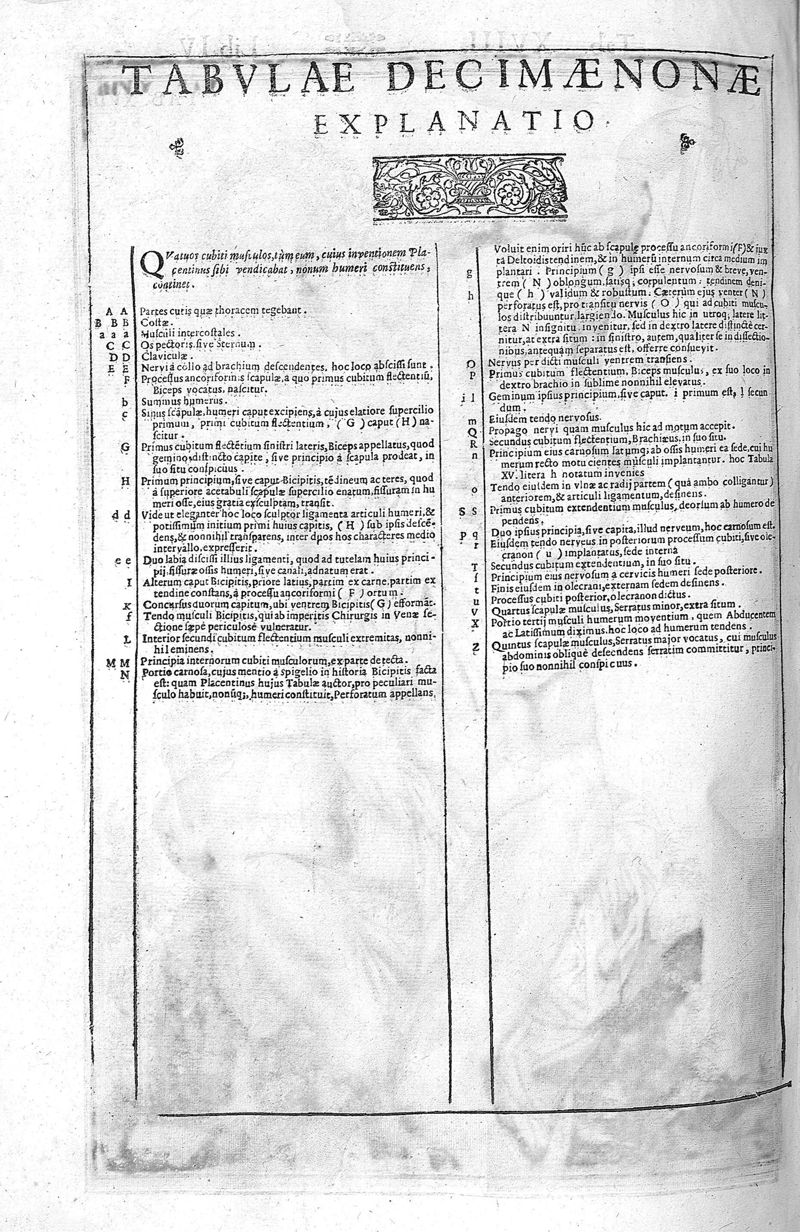 TABVLAE DECIMÆNONÆ
EXPLANATIO.
QVatuor cubiti musculos, tùm eum, cuius inventionem Pla-
centinus sibi vendicabat, nonum humeri constituens,
continet.
A A Partes cutis quæ thoracem tegebant.
B B B Costæ.
a a a Musculi intercostales.
C C Os pectoris, sive Sternum.
D D Claviculæ.
E E Nervi à collo ad brachium descendentes, hoc loco abscissi sunt.
F Processus ancoriformis scapulæ, a quo primus cubitum flectentiũ,
Biceps vocatus, nascitur.
b Summus humerus.
c Sinus scapulæ, humeri caput excipiens, à cujus elatiore supercilio
primum, primi cubitum flectentium, (G) caput (H) na-
scitur.
G Primus cubitum flectẽtium sinistri lateris, Biceps appellatus, quod
gemino, distincto capite, sive principio à scapula prodeat, in
suo situ conspicuus.
H Primum principium, sive caput Bicipitis, tẽdineum ac teres, quod
à superiore acetabuli scapulæ supercilio enatum, fissuram in hu
meri osse, ejus gratia exsculptam, transit.
d d Vide ut eleganter hoc loco sculptor ligamenta articuli humeri, &
potissimum initium primi huius capitis, (H) sub ipsis descẽ-
dens, & nonnihil transparens, inter duos hos characteres medio
intervallo, expresserit.
e e Duo labia discissi illius ligamenti, quod ad tutelam huius princi-
pij, fissuræ ossis humeri, sive canali, adnatum erat.
I Alterum caput Bicipitis, priore latius, partim ex carne, partim ex
tendine constans, à processu ancoriformi (F) ortum.
K Concursus duorum capitum, ubi ventrem Bicipitis (G) efformãt.
f Tendo musculi Bicipitis, qui ab imperitis Chirurgis in Venæ se-
ctione sæpe periculosè vulneratur.
L Interior secundi cubitum flectentium musculi extremitas, nonni-
hil eminens.
M M Principia interiorum cubiti musculorum, ex parte detecta.
N Portio carnosa, cujus mentio à spigelio in historia Bicipitis facta
est: quam Placentinus hujus Tabulæ auctor, pro peculiari mu-
sculo habuit, nonũq;, humeri constituit, Perforatum appellans,
Voluit enim oriri hũc ab scapulę processu ancoriformi (F) & jux
tà Deltoidis tendinem, & in humerũ internum circa medium im
g plantari. Principium (g) ipsi esse nervosum & breve, ven-
trem (N) oblongum, latũsq, corpulentum: tendinem deni-
h que (h) validum & robustum. Cæterùm ejus venter (N)
perforatus est, pro transitu nervis (O) qui ad cubiti muscu-
los distribuuntur, largiendo. Musculus hic in utroq, latere lit-
tera N insignitu invenitur, sed in dextro latere distinctè cer-
nitur, at extra situm: in sinistro, autem, qualiter se in dissectio-
nibus, antequam separatus est, offerre consueyit.
O Nervus per dicti musculi ventrem transiens.
P Primus cubitum flectentium, Biceps musculus, ex suo loco in
dextro brachio in sublime nonnihil elevatus.
i l Geminum ipsius principium, sive caput. i primum est, l secun
dum.
m Eiusdem tendo nervosus.
Q Propago nervi quam musculus hic ad motum accepit.
R Secundus cubitum flectentium, Brachiæus, in suo situ.
n Principium eius carnosum latumq; ab ossis humeri ea sede, cui hu
merum recto motu cientes musculi implantantur. hoc Tabula
XV. litera h notatum invenies
o Tendo eiusdem in vlnæ ac radij partem (quà ambo colligantur)
anteriorem, & articuli ligamentum, desinens.
S S Primus cubitum extendentium musculus, deorsum ab humero de
pendens.
p q Duo ipsius principia, sive capita, illud nerveum, hoc carnosum est.
r Eiusdem tendo nerveus in posteriorum processum cubiti, sive ole-
cranon (u) implantatus, sede interna
T Secundus cubitum extendentium, in suo situ.
s Principium eius nervosum à cervicis humeri sede posteriore.
t Finis eiusdem in olecrani, externam sedem desinens.
u Processus cubiti posterior, olecranon dictus.
V Quartus scapulæ musculus, Serratus minor, extra situm.
X Portio tertij musculi humerum moventium, quem Abducentem
ac Latissimum diximus, hoc loco ad humerum tendens.
Z Quintus scapulæ musculus, Serratus major vocatus, cui musculus
abdominis obliquè descendens serratim committitur, princi-
pio suo nonnihil conspicuus.